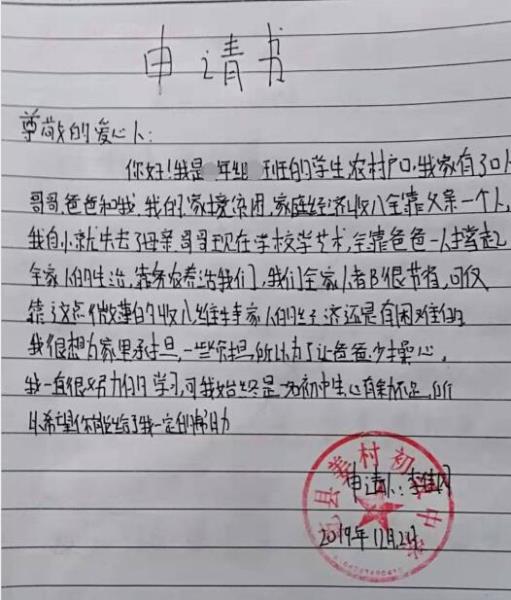 申请书
尊敬的爱心人：
你好！我是 年组 班的学生农村户口，我家有了口人
哥哥爸爸和我，我的家境贫困，家庭经济收入全靠父亲一个人，
我自小就失去了母亲哥哥现在学校学艺术，全靠爸爸一人撑起
全家人的生活，靠务农养活我们，我们全家人都很节省，可仅
靠这点微薄的收入维持家人的经济还是有困难的
我很想为家里承担，一些负担所以为了让爸爸少操心，
我一直很努力的学习，可我始终是一名初中生心有余而不足，所
以希望你能给了我一定的帮助
申请人：李佳
2019年12月2日
县姜村初级中学